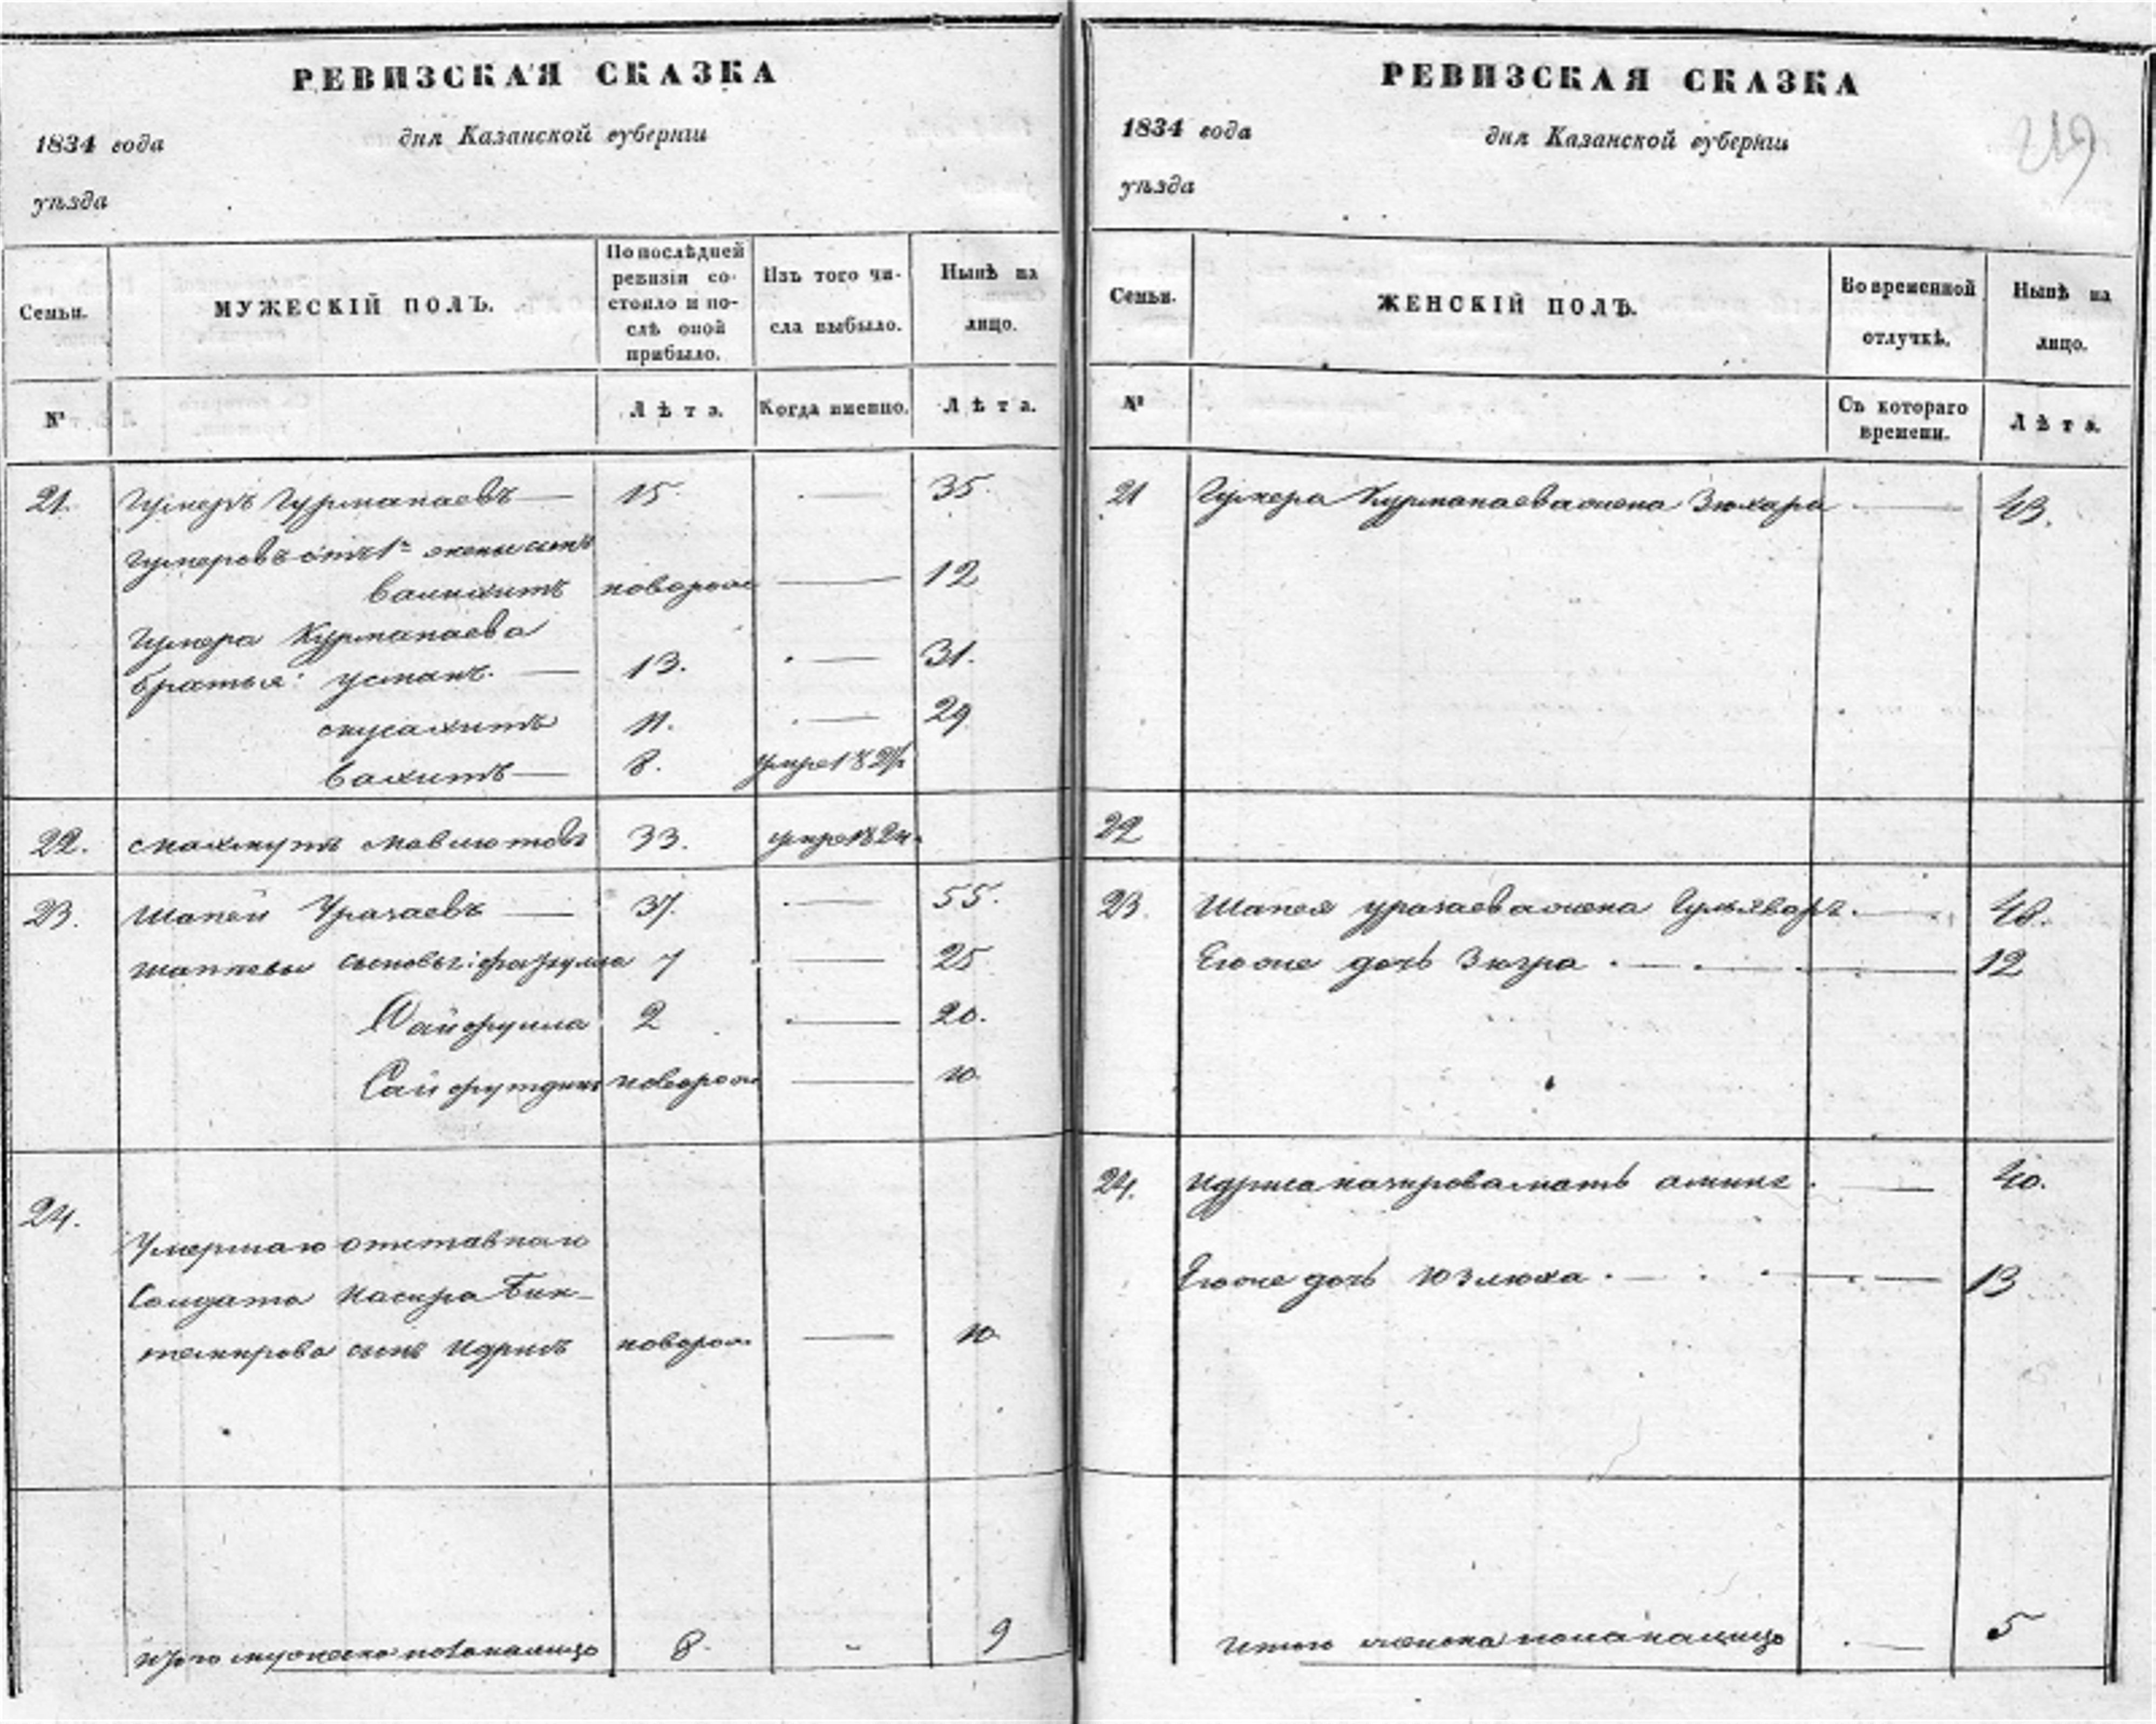 РЕВИЗСКАЯ СКАЗКА
1834 года дня Казанской губерніи
уѣзда
Семьи. МУЖЕСКІЙ ПОЛЪ. По послѣдней ревизіи состояло и послѣ оной прибыло. Изъ того числа выбыло. Нынѣ на лицо.
№ Лѣта. Когда именно. Лѣта.
21. Гумеръ Гурманаевъ — 15. — 35.
Гумеровъ отъ 1й жены сынъ
Валихитъ новорож — 12
Гумера Курманаева
братья: Усманъ. — 13. — 31.
11. — 29
Вахитъ — 8. умре 182
22. Махмутъ Мавлютовъ 33. умре 182
23. Шапей Уразаевъ — 37. — 55.
Шапеевы сыновья: 7 — 25
Файфулла 2 — 20.
Сайфутдинъ новорож — 10
24.
Умершаго отставнаго
Солдата Насыра Бик-
темирова сынъ Идрисъ новорож — 10
Итого мужеска пола налицо 8. 9
РЕВИЗСКАЯ СКАЗКА
1834 года дня Казанской губерніи
уѣзда
219
Семьи. ЖЕНСКІЙ ПОЛЪ. Во временной отлучкѣ. Нынѣ на лицо.
№ Съ котораго времени. Лѣта.
21 Гумера Курманаева жена Зюхара — 43.
22
23. Шапея Уразаева жена Гульяваръ. — 48.
Его же дочь Зюгра — 12
24. Идриса Насырова мать — 40.
Его же дочь Юзлюха — 13
Итого женска пола налицо — 5